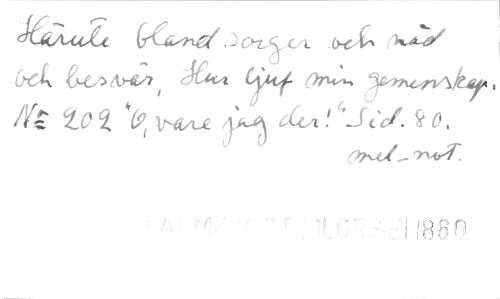 Härute bland sorger och nöd
och besvär, Hur ljuf min gemenskap.
No 202 "O, vare jag der!" Sid. 80.
mel-not.
1880